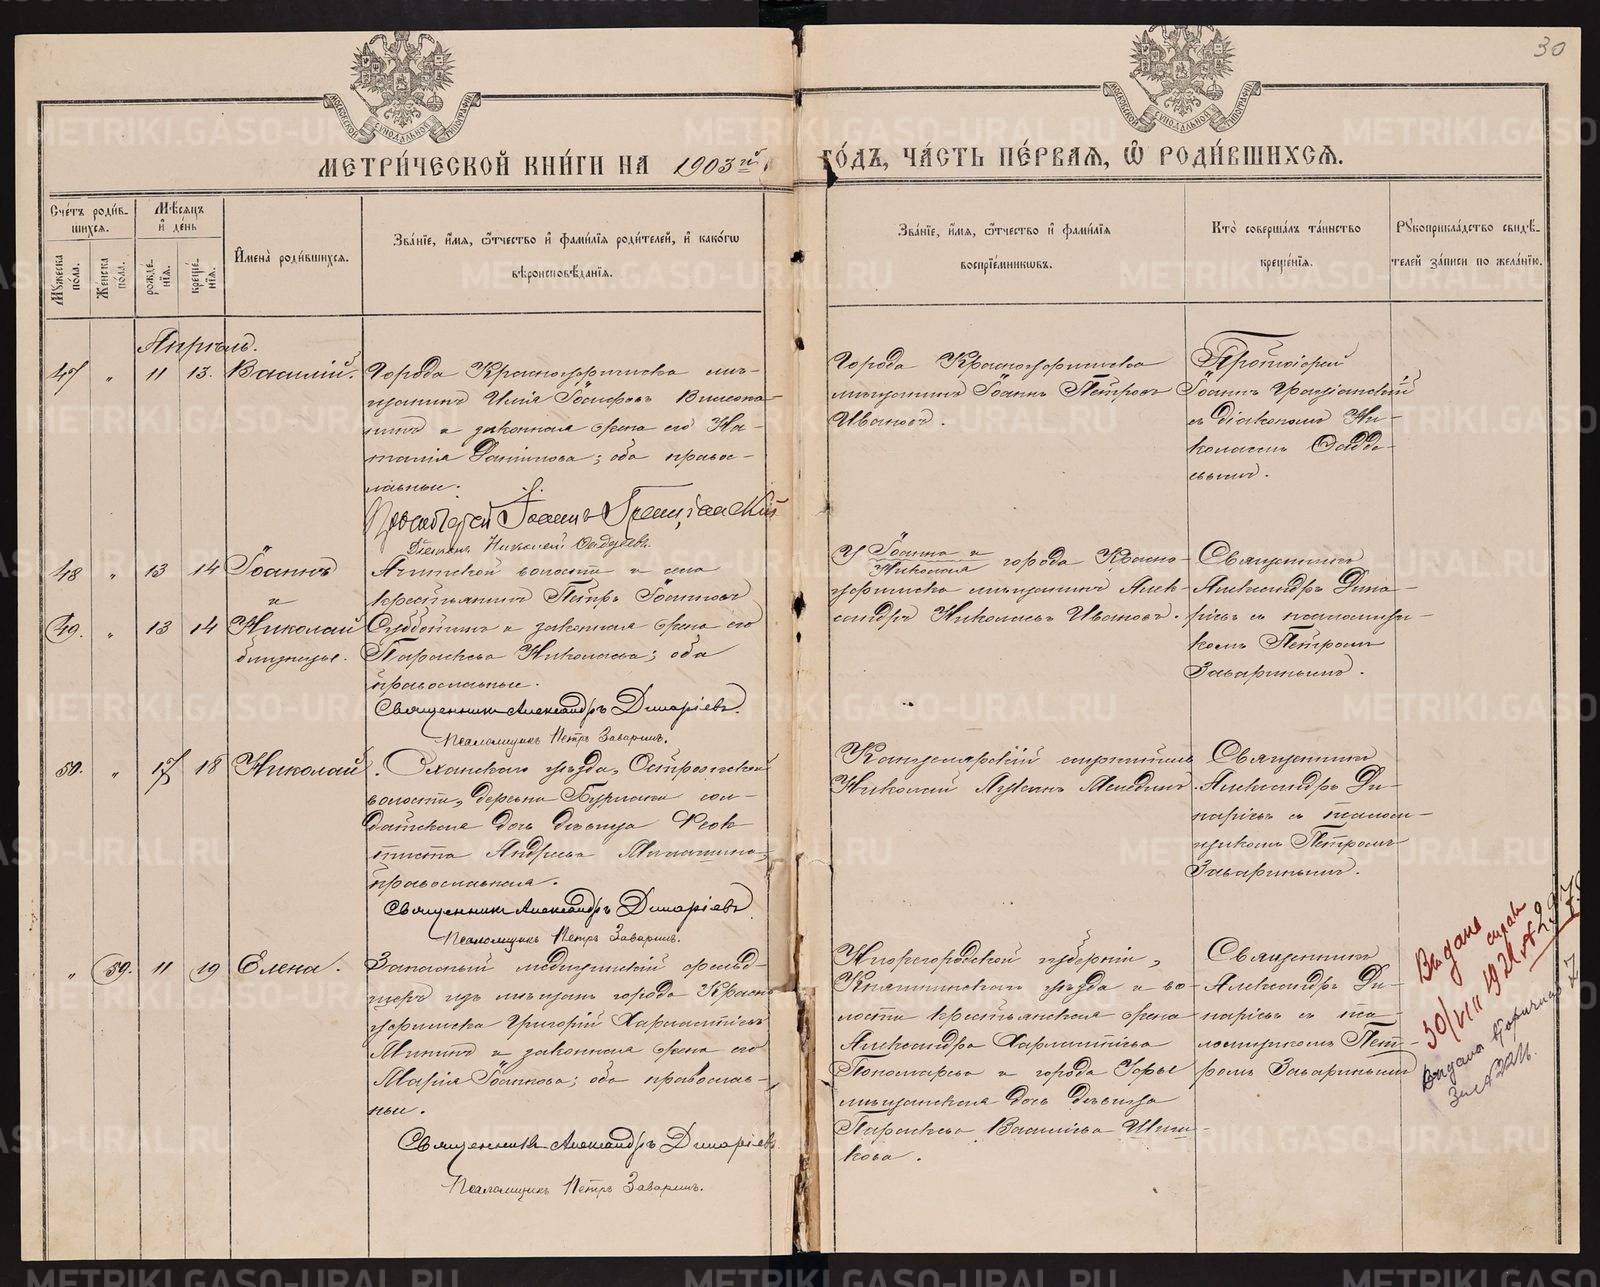 30
МОСКОВСКОЙ СѴНОДАЛЬНОЙ ТИПОГРАФІИ
МОСКОВСКОЙ СѴНОДАЛЬНОЙ ТИПОГРАФІИ
МЕТРИ́ЧЕСКОЙ КНИ́ГИ НА 1903й ГО́ДЪ, ЧА́СТЬ ПЕ́РВАѦ, Ѡ҆ РОДИ́ВШИХСѦ.
Сче́тъ роди́в-
шихсѧ.
Мꙋ́жеска по́ла.
Же́нска по́ла.
Мѣ́сѧцъ
и҆ де́нь
рожде́-
нїѧ.
креще́-
нїѧ.
И҆мена̀ роди́вшихсѧ.
Зва́нїе, и҆́мѧ, ѻ҆́тчество и҆ фами́лїѧ роди́телей, и҆ како́гѡ
вѣроисповѣ́данїѧ.
Зва́нїе, и҆́мѧ, ѻ҆́тчество и҆ фами́лїѧ
воспрїе́мникѡвъ.
Кто̀ соверша́лъ та́инство
креще́нїѧ.
Рꙋкоприкла́дство свидѣ́-
телей за́писи по жела́нїю.
Апрѣль.
47 " 11 13. Василій.
Города Красноуфимска мѣ-
щанинъ Илія Іосифовъ
и законная жена его На-
талія; оба правос-
лавные.
Протоіерей Іоаннъ Граціанскій
Діаконъ Николай
Города Красноуфимска
мѣщанинъ Іоаннъ Петровъ
Ивановъ.
Протоіерей
Іоаннъ Граціанскій
съ діакономъ Ни-
колаемъ
48 " 13 14 Іоаннъ
и
49. " 13 14 Николай
близнецы.
Ачитской волости и села
крестьянинъ Петръ Іоанновъ
Субботинъ и законная жена его
Параскева Николаева; оба
православные.
Священникъ Александръ Димаріевъ.
Псаломщикъ Петръ Заваринъ.
У Іоанна и
Николая города Красно-
уфимска мѣщанинъ Алек-
сандръ Николаевъ Ивановъ.
Священникъ
Александръ Дима-
ріевъ съ псаломщи-
комъ Петромъ
Заваринымъ.
50. " 17 18 Николай.
Оханскаго уѣзда, Острожской
волости, деревни сол-
датская дочь дѣвица Ѳеок-
тиста Андреева
православная.
Священникъ Александръ Димаріевъ
Псаломщикъ Петръ Заваринъ.
Канцелярскій служитель
Николай
Священникъ
Александръ Ди-
маріевъ съ псалом-
щикомъ Петромъ
Заваринымъ.
" 59. 11 19 Елена.
Запасный медицинскій фельд-
шеръ изъ мѣщанъ города Красно-
уфимска Григорій Харлампіевъ
Мининъ и законная жена его
Марія; оба православ-
ные.
Священникъ Александръ Димаріевъ
Псаломщикъ Петръ Заваринъ.
Нижегородской губерніи,
Княгининскаго уѣзда и во-
лости крестьянская жена
Александра Харлампіева
Пономарева и города Уфы
мѣщанская дочь дѣвица
Параскева Васильева
Священникъ
Александръ Ди-
маріевъ съ пса-
ломщикомъ Пет-
ромъ Заваринымъ
Выдана справ
30/VIII 1921 № 2
Выдана вторичная